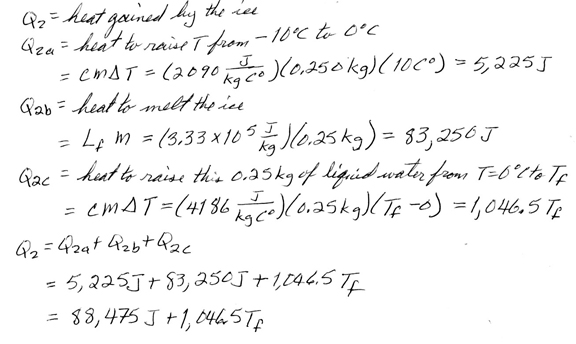 Q₂ = heat gained by the ice
Q₂a = heat to raise T from -10°C to 0°C
= cmΔT = (2090 J/kg C°)(0.250 kg)(10 C°) = 5,225 J
Q₂b = heat to melt the ice
= L_f m = (3.33 x 10⁵ J/kg)(0.25 kg) = 83,250 J
Q₂c = heat to raise this 0.25 kg of liquid water from T=0°C to T_f
= cmΔT = (4186 J/kg C°)(0.25 kg)(T_f - 0) = 1,046.5 T_f
Q₂ = Q₂a + Q₂b + Q₂c
= 5,225 J + 83,250 J + 1,046.5 T_f
= 88,475 J + 1,046.5 T_f